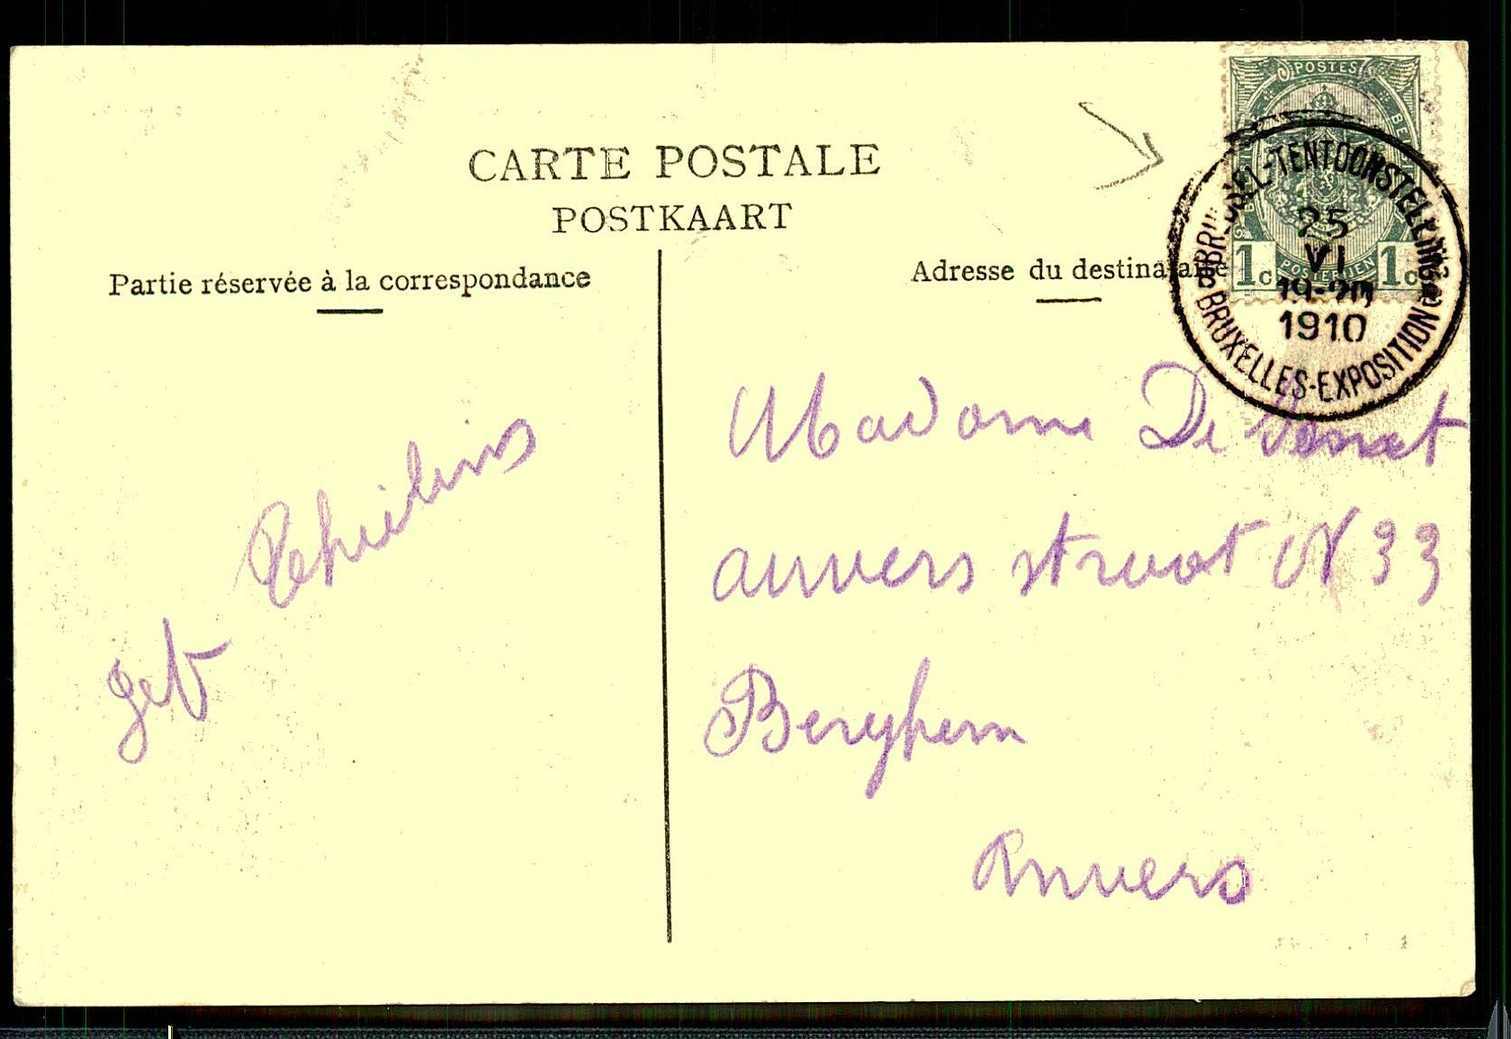 CARTE POSTALE
POSTKAART
Partie réservée à la correspondance
Adresse du destinataire
POSTES
1c POSTERIJEN 1c
BRUSSEL-TENTOONSTELLING
25
VI
19-20
1910
BRUXELLES-EXPOSITION
Madame De
anvers straat N 33
Berghem
Anvers